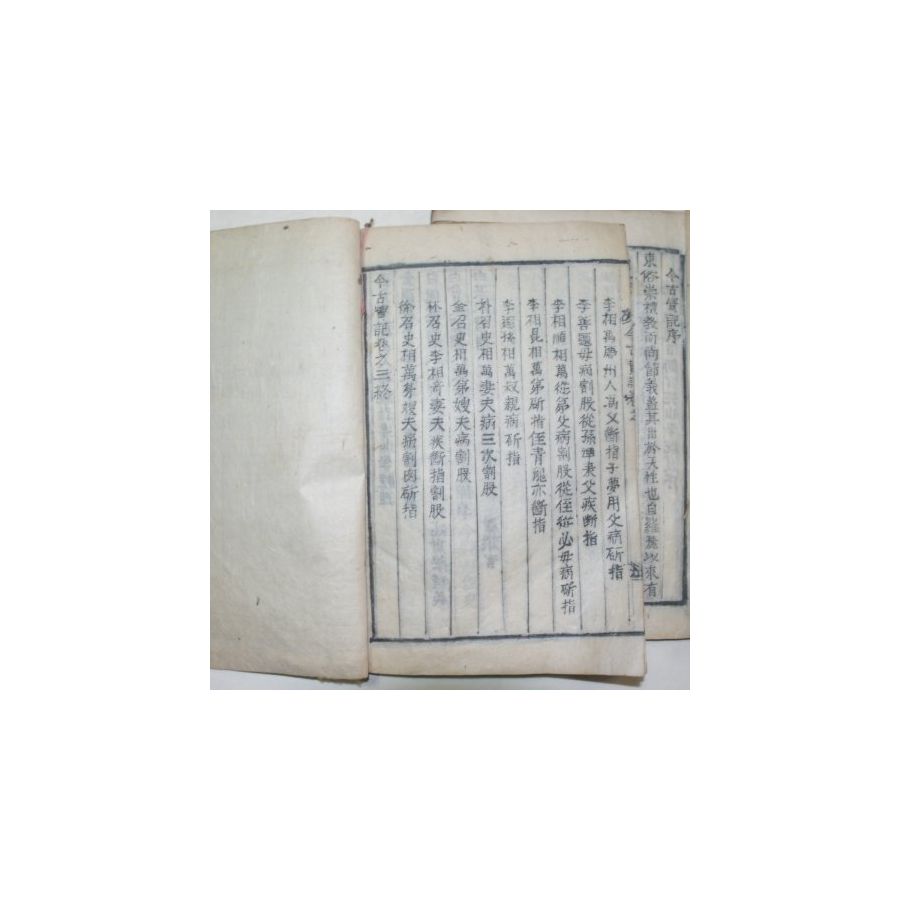 今古實記序
東俗崇禮敎尙節義盖其出於天性也自羅麗以來有
李相萬廣州人爲父斷指子夢用父病斫指
李善還母病割股從孫坤秉父疾斷指
李相順相萬從弟父病割股從侄從必母病斫指
李相昆相萬弟斫指侄靑龍亦斷指
李迴 相萬奴親病斫指
朴召史相萬妻夫病三次割股
金召史相萬弟嫂夫病割股
林召史李相奇妻夫疾斷指割股
徐召史相萬 嫂夫病割肉斫指
今古實記卷之三終